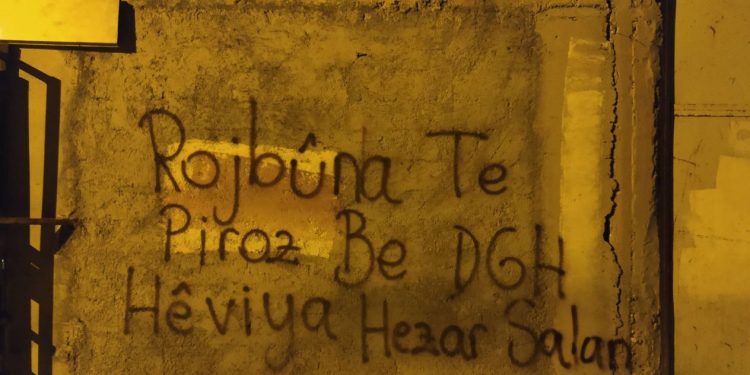 Rojbûna Te
Piroz Be DGH
Hêviya Hezar Salan